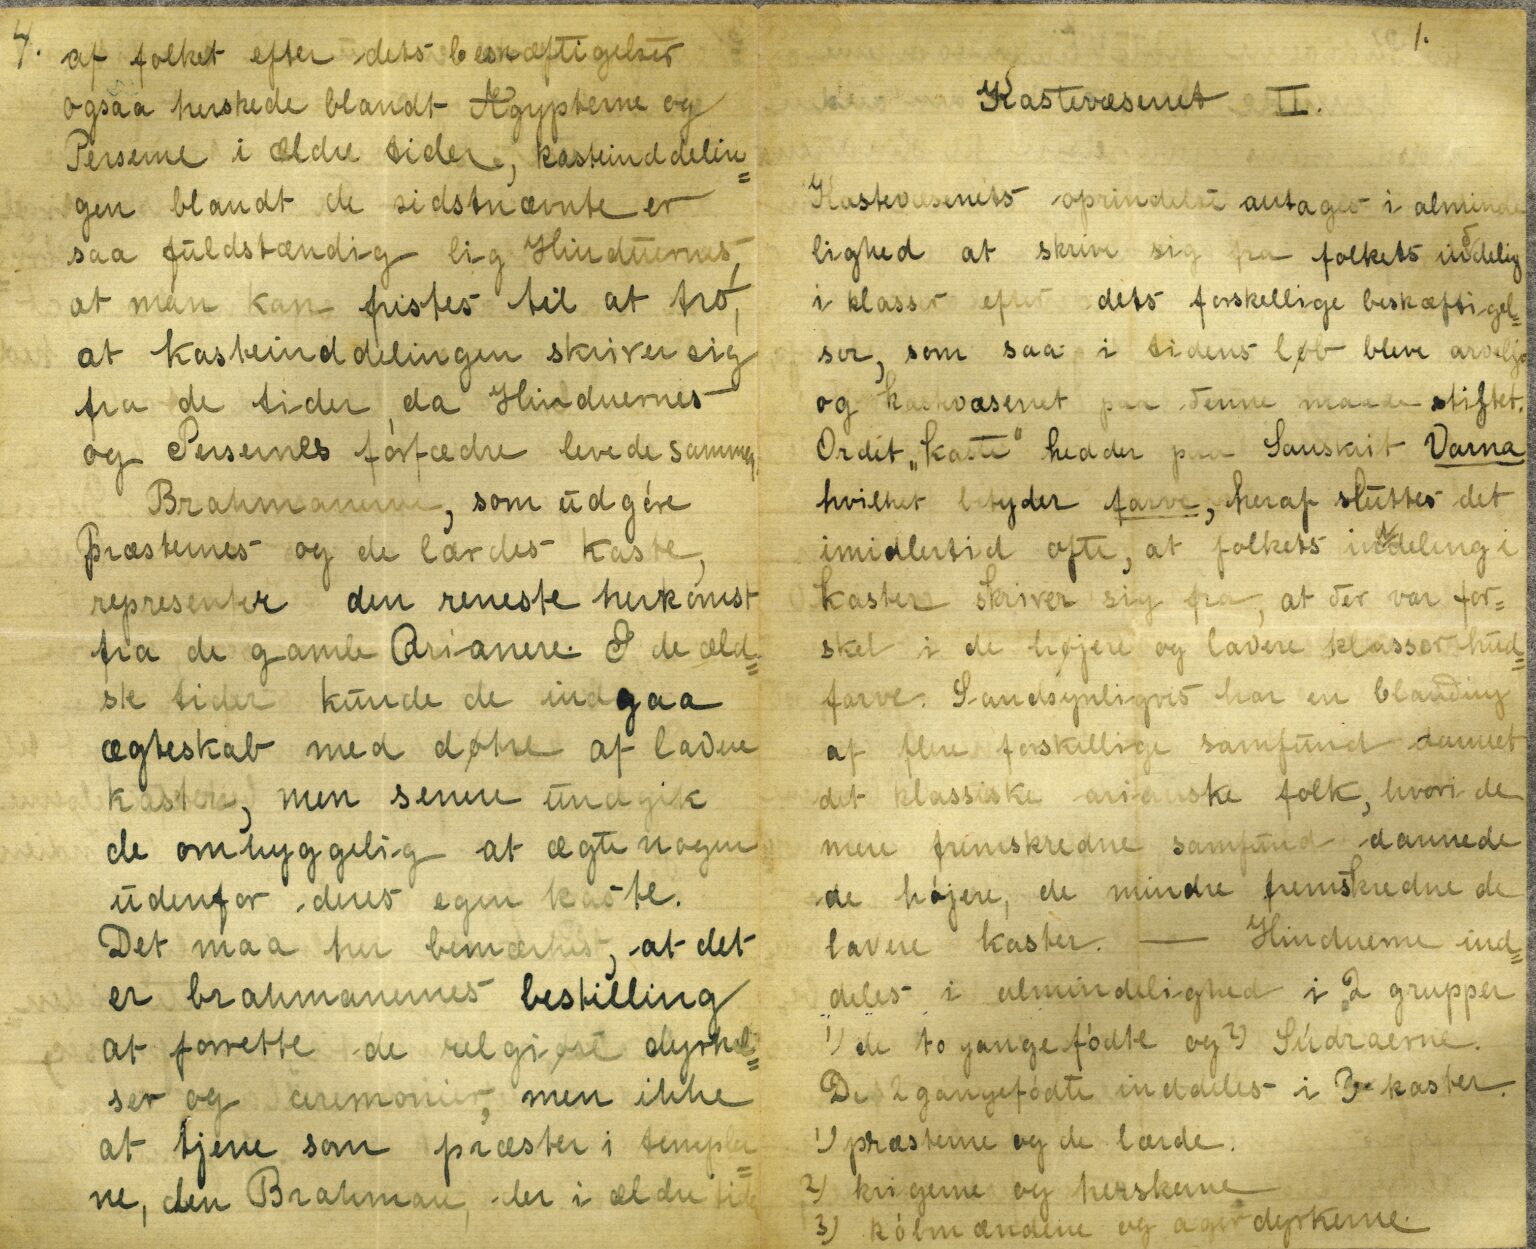 4.
af folket efter dets beskæftigelser
ogsaa herskede blandt Ægypterne og
Perserne i ældre tider, kasteinddelin=
gen blandt de sidstnævnte er
saa fuldstændig lig Hinduernes,
at man kan fristes til at tro,
at kasteinddelingen skriver sig
fra de tider da Hinduernes
og Persernes forfædre levede sammen.
Brahmanerne, som udgøre
præsternes og de lærdes kaste,
representer den reneste herkomst
fra de gamle Arianere. I de æld=
ste tider kunde de indgaa
ægteskab med døtre af lavere
kaster, men senere undgik
de omhyggelig at ægte nogen
udenfor deres egen kaste.
Det maa her bemærkes, at det
er brahmanernes bestilling
at forrette de religiøse dyrkel=
ser og ceremonier, men ikke
at tjene som præster i temple=
ne, den Brahman, der i ældre tid
1.
Kastevæsenet II.
Kastevæsenets oprindelse antages i alminde
lighed at skrive sig fra folkets inddeling
i klasser efter dets forskellige beskæftigel=
ser, som saa i tidens løb bleve arvelige
og kastevæsenet paa denne maade stiftet.
Ordet „kaste" hedder paa Sanskrit Varna
hvilket betyder farve, heraf sluttes det
imidlertid ofte, at folkets inddeling i
kaster skriver sig fra, at der var for=
skel i de højere og lavere klasser hud=
farve. Sandsynligvis har en blanding
af flere forskellige samfund dannet
det klassiske arianske folk, hvori de
mere fremskredne samfund dannede
de højere, de mindre fremskredne de
lavere kaster. — Hinduerne ind=
deles i almindelighed i 2 grupper
1) de to gange fødte og 2) Súdraerne.
De 2 gangefødte inddeles i 3 kaster.
1) præsterne og de lærde.
2) krigerne og herskerne
3) købmændene og agerdyrkerne.